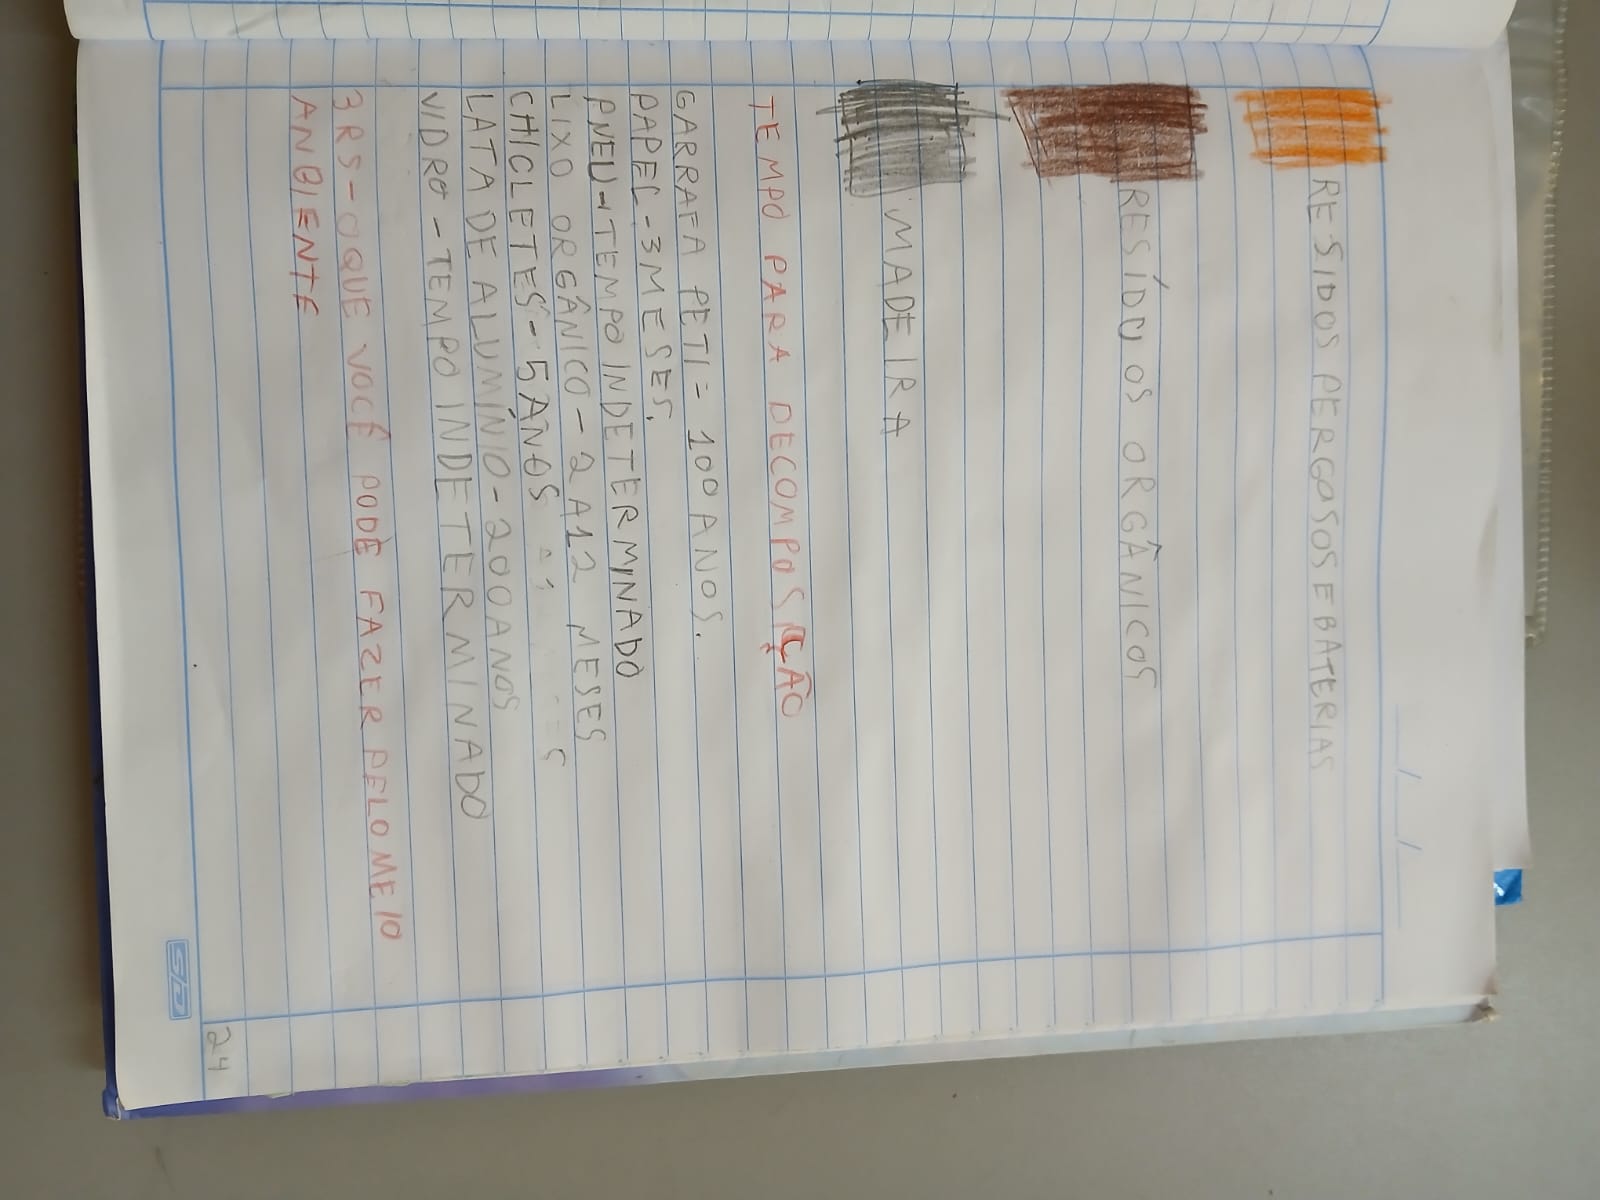 RESIDOS PERGOSOS E BATERIAS
RESÍDUOS ORGÂNICOS
MADEIRA
TEMPO PARA DECOMPOSIÇÃO
GARRAFA PETI = 100 ANOS.
PAPEL - 3 MESES.
PNEU - TEMPO INDETERMINADO
LIXO ORGÂNICO - 2 A 12 MESES
CHICLETES - 5 ANOS
LATA DE ALUMÍNIO - 200 ANOS
VIDRO - TEMPO INDETERMINADO
3RS - O QUE VOCÊ PODE FAZER PELO MEIO
ANBIENTE
24